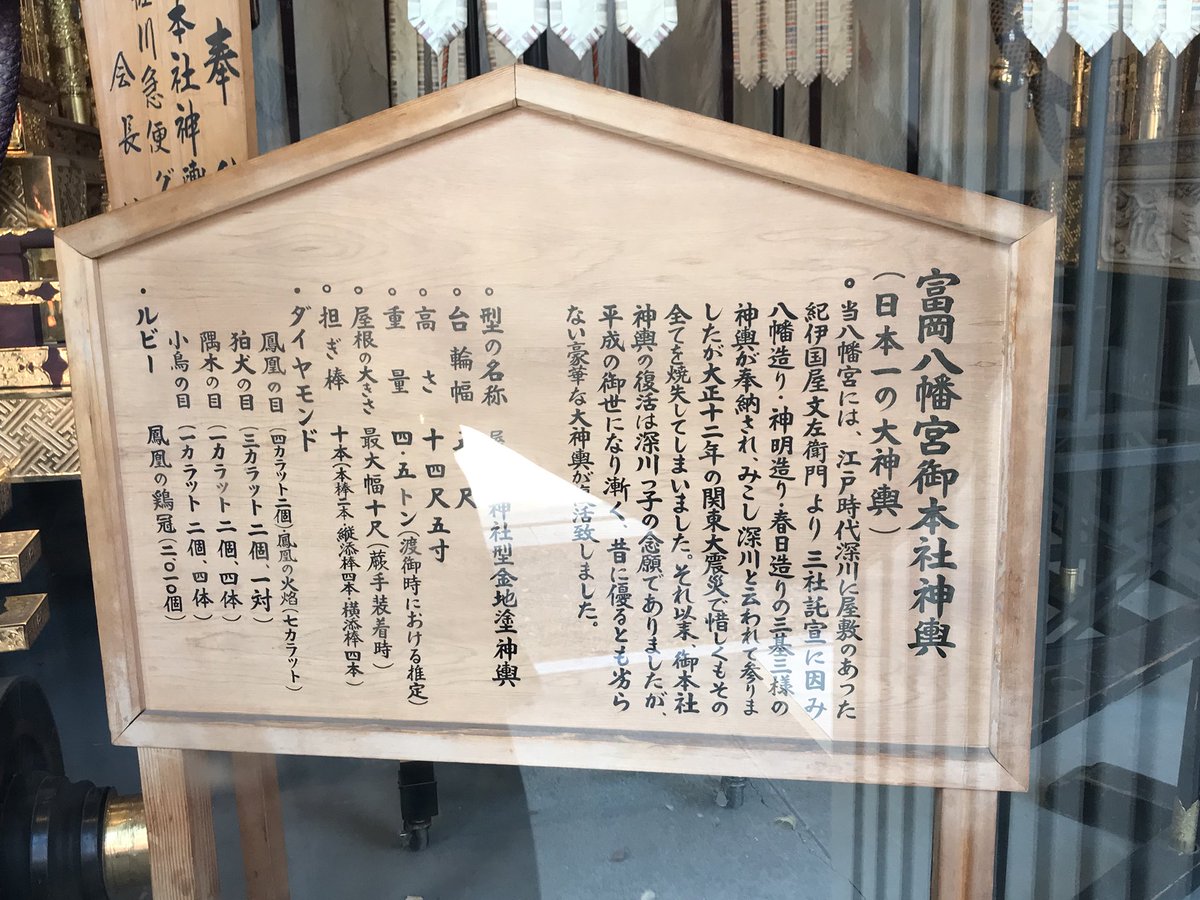 富岡八幡宮御本社神輿
（日本一の大神輿）
。当八幡宮には、江戸時代深川に屋敷のあった
紀伊国屋文左衛門より三社託宣に因み
八幡造り・神明造り・春日造りの三基三様の
神輿が奉納され、みこし深川と云われて参りま
したが大正十二年の関東大震災で惜しくもその
全てを焼失してしまいました。それ以来、御本社
神輿の復活は深川っ子の念願でありましたが、
平成の御世になり漸く、昔に優るとも劣ら
ない豪華な大神輿が活致しました。
・型の名称 神社型金地塗神輿
・台輪幅 尺
。高さ 十四尺五寸
。重量 四・五トン（渡御時における推定）
。屋根の大きさ 最大幅十尺（蕨手装着時）
。担ぎ棒 十本（本棒二本・縦添棒四本・横添棒四本）
・ダイヤモンド
鳳凰の目（四カラット二個）・鳳凰の火焔（七カラット）
狛犬の目（三カラット二個、一対）
隅木の目（一カラット二個、四体）
小鳥の目（一カラット二個、四体）
・ルビー 鳳凰の鶏冠（二〇一〇個）
奉
本社神輿
佐川急便グ
会長